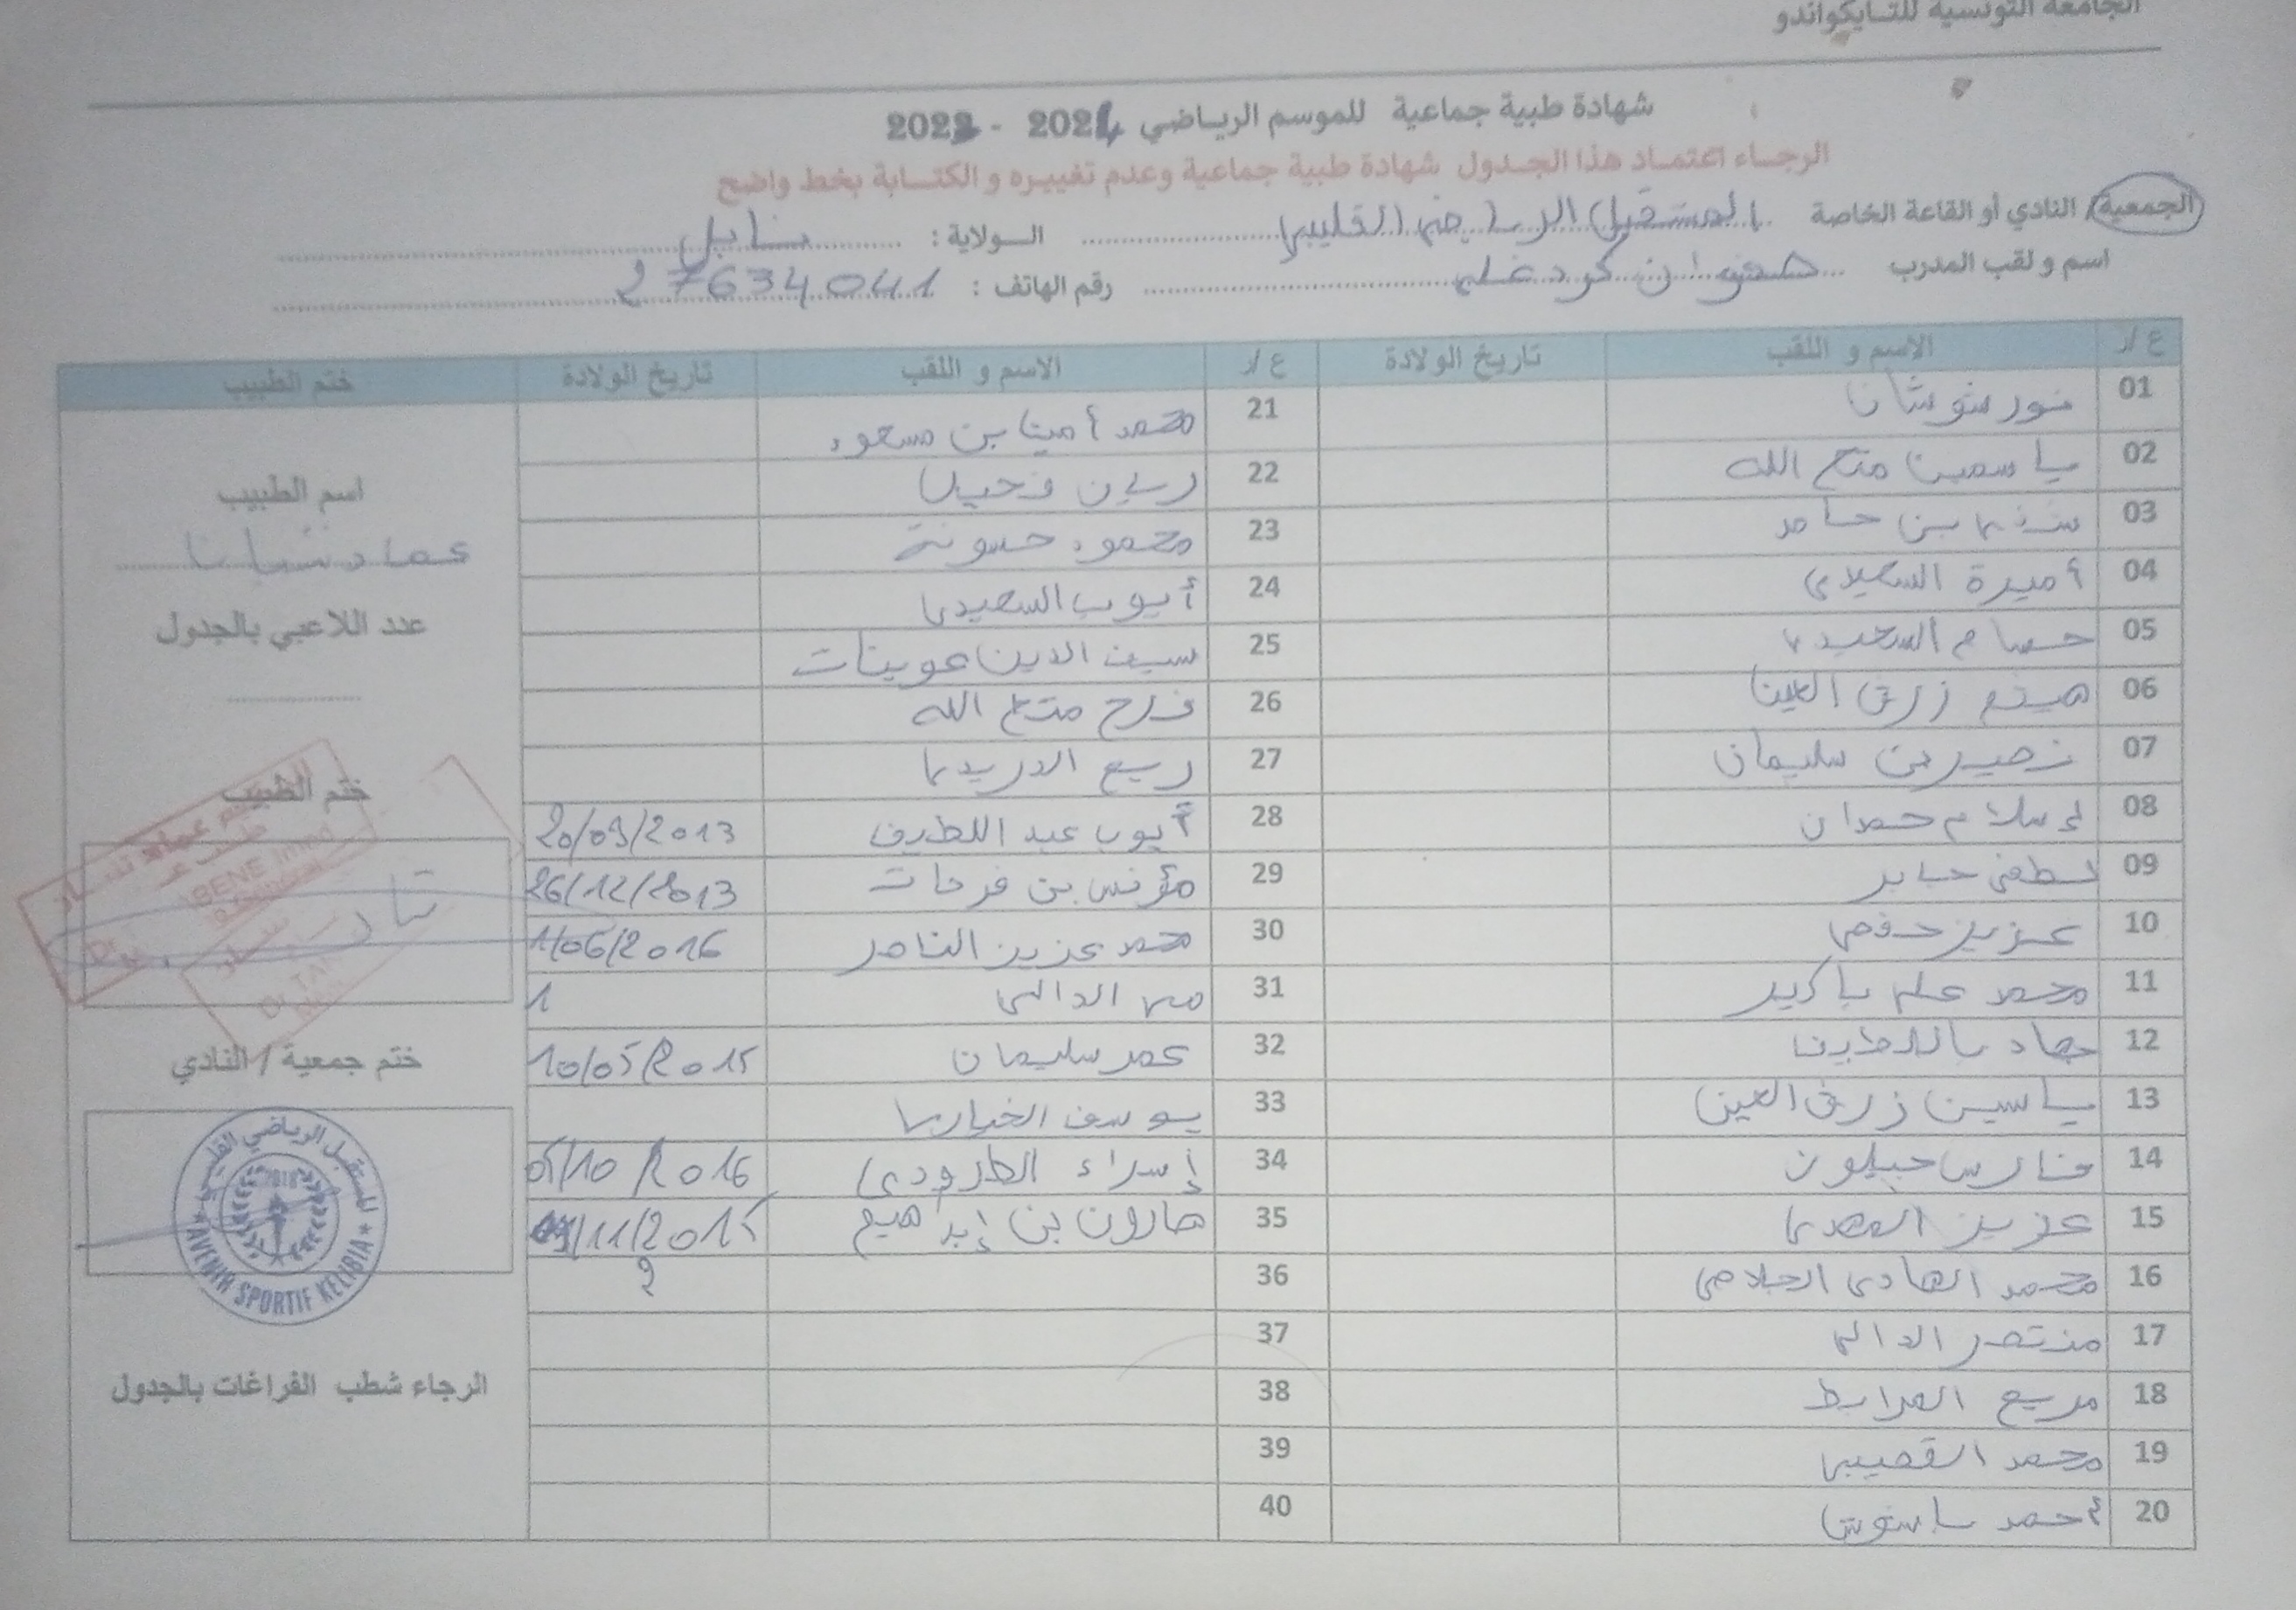 الجامعة التونسية للتايكواندو
شهادة طبية جماعية للموسم الرياضي 2024 - 2023
الرجاء اعتماد هذا الجدول شهادة طبية جماعية وعدم تغييره و الكتابة بخط واضح
الجمعية / النادي أو القاعة الخاصة المستقبل الرياضي القليبي الولاية : نابل
اسم و لقب المدرب صفوان كردغلي رقم الهاتف : 27634041
ع/د الاسم و اللقب تاريخ الولادة ع/د الاسم و اللقب تاريخ الولادة ختم الطبيب
01 نور شوشان
02 ياسمين متع الله
03 بن حامد
04 أميرة السعيدي
05 حسام السعيدي
06 هيثم زرق العين
07 نصير بن سليمان
08 إسلام حمدان
09 لطفي جابر
10 عزيز حفصي
11 محمد علي باكير
12 جهاد
13 ياسين زرق العين
14 فارس
15 عزيز
16 محمد الهادي الجلاصي
17 منتصر الدالي
18 مريم المرابط
19 محمد القصيبي
20 أحمد
21 محمد أمين بن مسعود
22
23 محمود حسونة
24 أيوب السعيدي
25 سيف الدين عوينات
26 فرح متع الله
27 ربيع الدريدي
28 أيوب عبد اللطيف 20/09/2013
29 مؤنس بن فرحات 26/12/2013
30 محمد عزيز الناصر 1/06/2016
31 الدالي 1
32 عمر سليمان 10/05/2015
33 يوسف الخياري
34 إسراء الطرودي 05/10/2016
35 هارون بن إبراهيم /11/2015
36
37
38
39
40
اسم الطبيب
عماد
عدد اللاعبي بالجدول
ختم الطبيب
ختم جمعية / النادي
المستقبل الرياضي القليبي
2018
AVENIR SPORTIF KELIBIA
الرجاء شطب الفراغات بالجدول